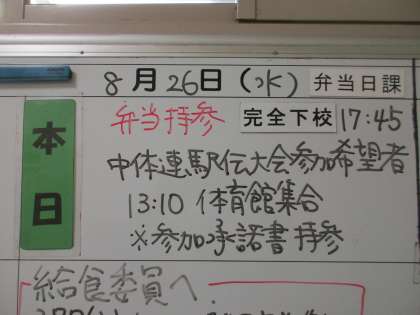 8月26日(水) 弁当日課
本日
弁当持参 完全下校 17:45
中体連駅伝大会参加希望者
13:10 体育館集合
※参加承諾書持参
給食委員へ.